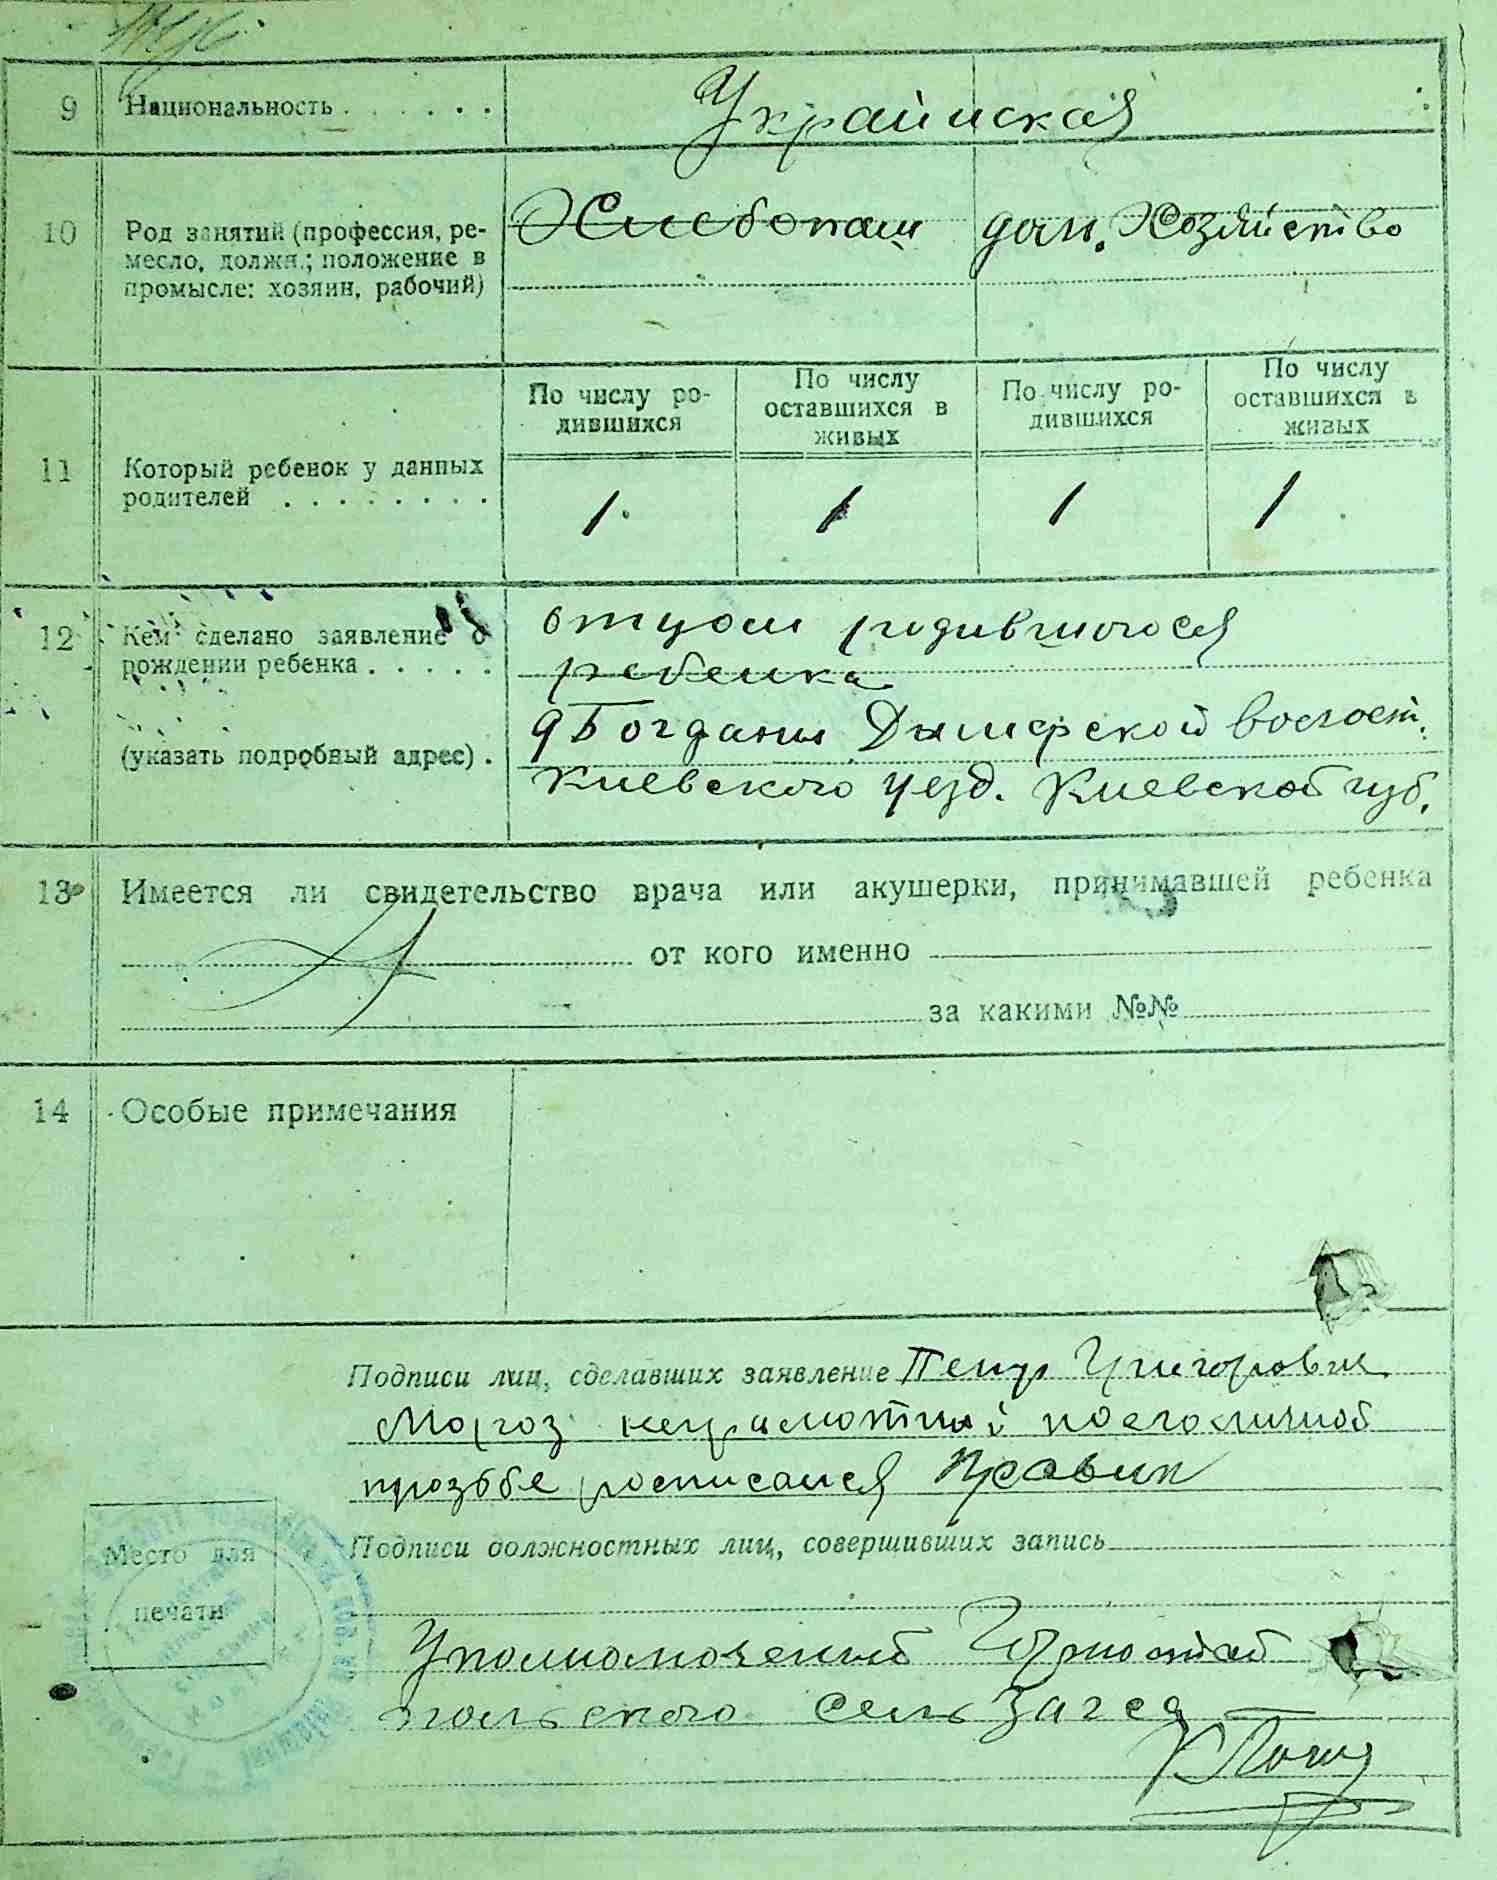 9 Национальность . . . . . . Украинская
10 Род занятий (профессия, ре-
месло, должн.; положение в
промысле: хозяин, рабочий)
Хлебопаш
дом. Хозяйство
11 Который ребенок у данных
родителей . . . . . . . .
По числу ро-
дившихся
По числу
оставшихся в
живых
По числу ро-
дившихся
По числу
оставшихся в
живых
1 1 1 1
12 Кем сделано заявление о
рождении ребенка . . . . .
(указать подробный адрес) .
отцом родившогося
ребенка
д Богданы Дымерской волост.
Киевского уезд. Киевской губ.
13 Имеется ли свидетельство врача или акушерки, принимавшей ребенка
от кого именно
за какими №№
14 Особые примечания
Подписи лиц, сделавших заявление Петр Григорович
Мороз неграмотный по его личной
прозьбе росписался Правик
Подписи должностных лиц, совершивших запись
Место для
печати
Уполномоченый Горностай
польского сель Загса